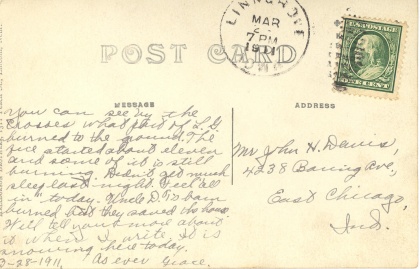 LINN GROVE
MAR
2
7 PM
1911
IOWA
POST CARD
MESSAGE
ADDRESS
You can see by the
crosses what part of L.G.
burned to the ground. The
fire started about eleven
and some of it is still
burning. Didn't get much
sleep last night. Feel "all
in" today. Uncle D's barn
burned but they saved the house.
Will tell you more about
it when I write. It is
snowing here today.
3-28-1911. As ever Grace.
Mr John H. Davis,
4238 Baring Ave.,
East Chicago,
Ind.